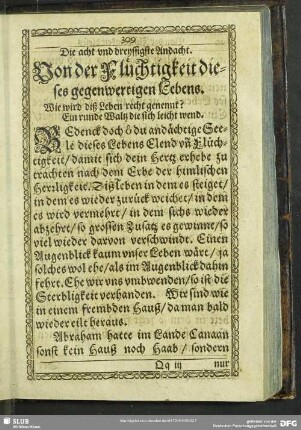 309
Die acht vnd dreyssigste Andacht.
Von der Flüchtigkeit die-
ses gegenwertigen Lebens.
Wie wird diß Leben recht genennt?
Ein runde Waltz die sich leicht wend.
BEdenck doch ô du andächtige See-
le dieses Lebens Elend vñ Flüch-
tigkeit/ damit sich dein Hertz erhebe zu
trachten nach dem Erbe der himlischen
Herrligkeit. Diß Leben in dem es steiget/
in dem es wieder zurück weichet/ in dem
es wird vermehrt/ in dem sichs wieder
abzehrt/ so grossen Zusatz es gewinne/ so
viel wieder darvon verschwindt. Einen
Augenblick kaum vnser Leben wärt/ ja
solches wol ehe/ als im Augenblick dahin
fehrt. Ehe wir vns vmbwenden/ so ist die
Sterbligkeit verhanden. Wir sind wie
in einem frembden Hauß/ da man bald
wieder eilt heraus.
Abraham hatte im Lande Canaan
sonst kein Hauß noch Haab/ sondern
Qq iij nur
SLUB
DFG